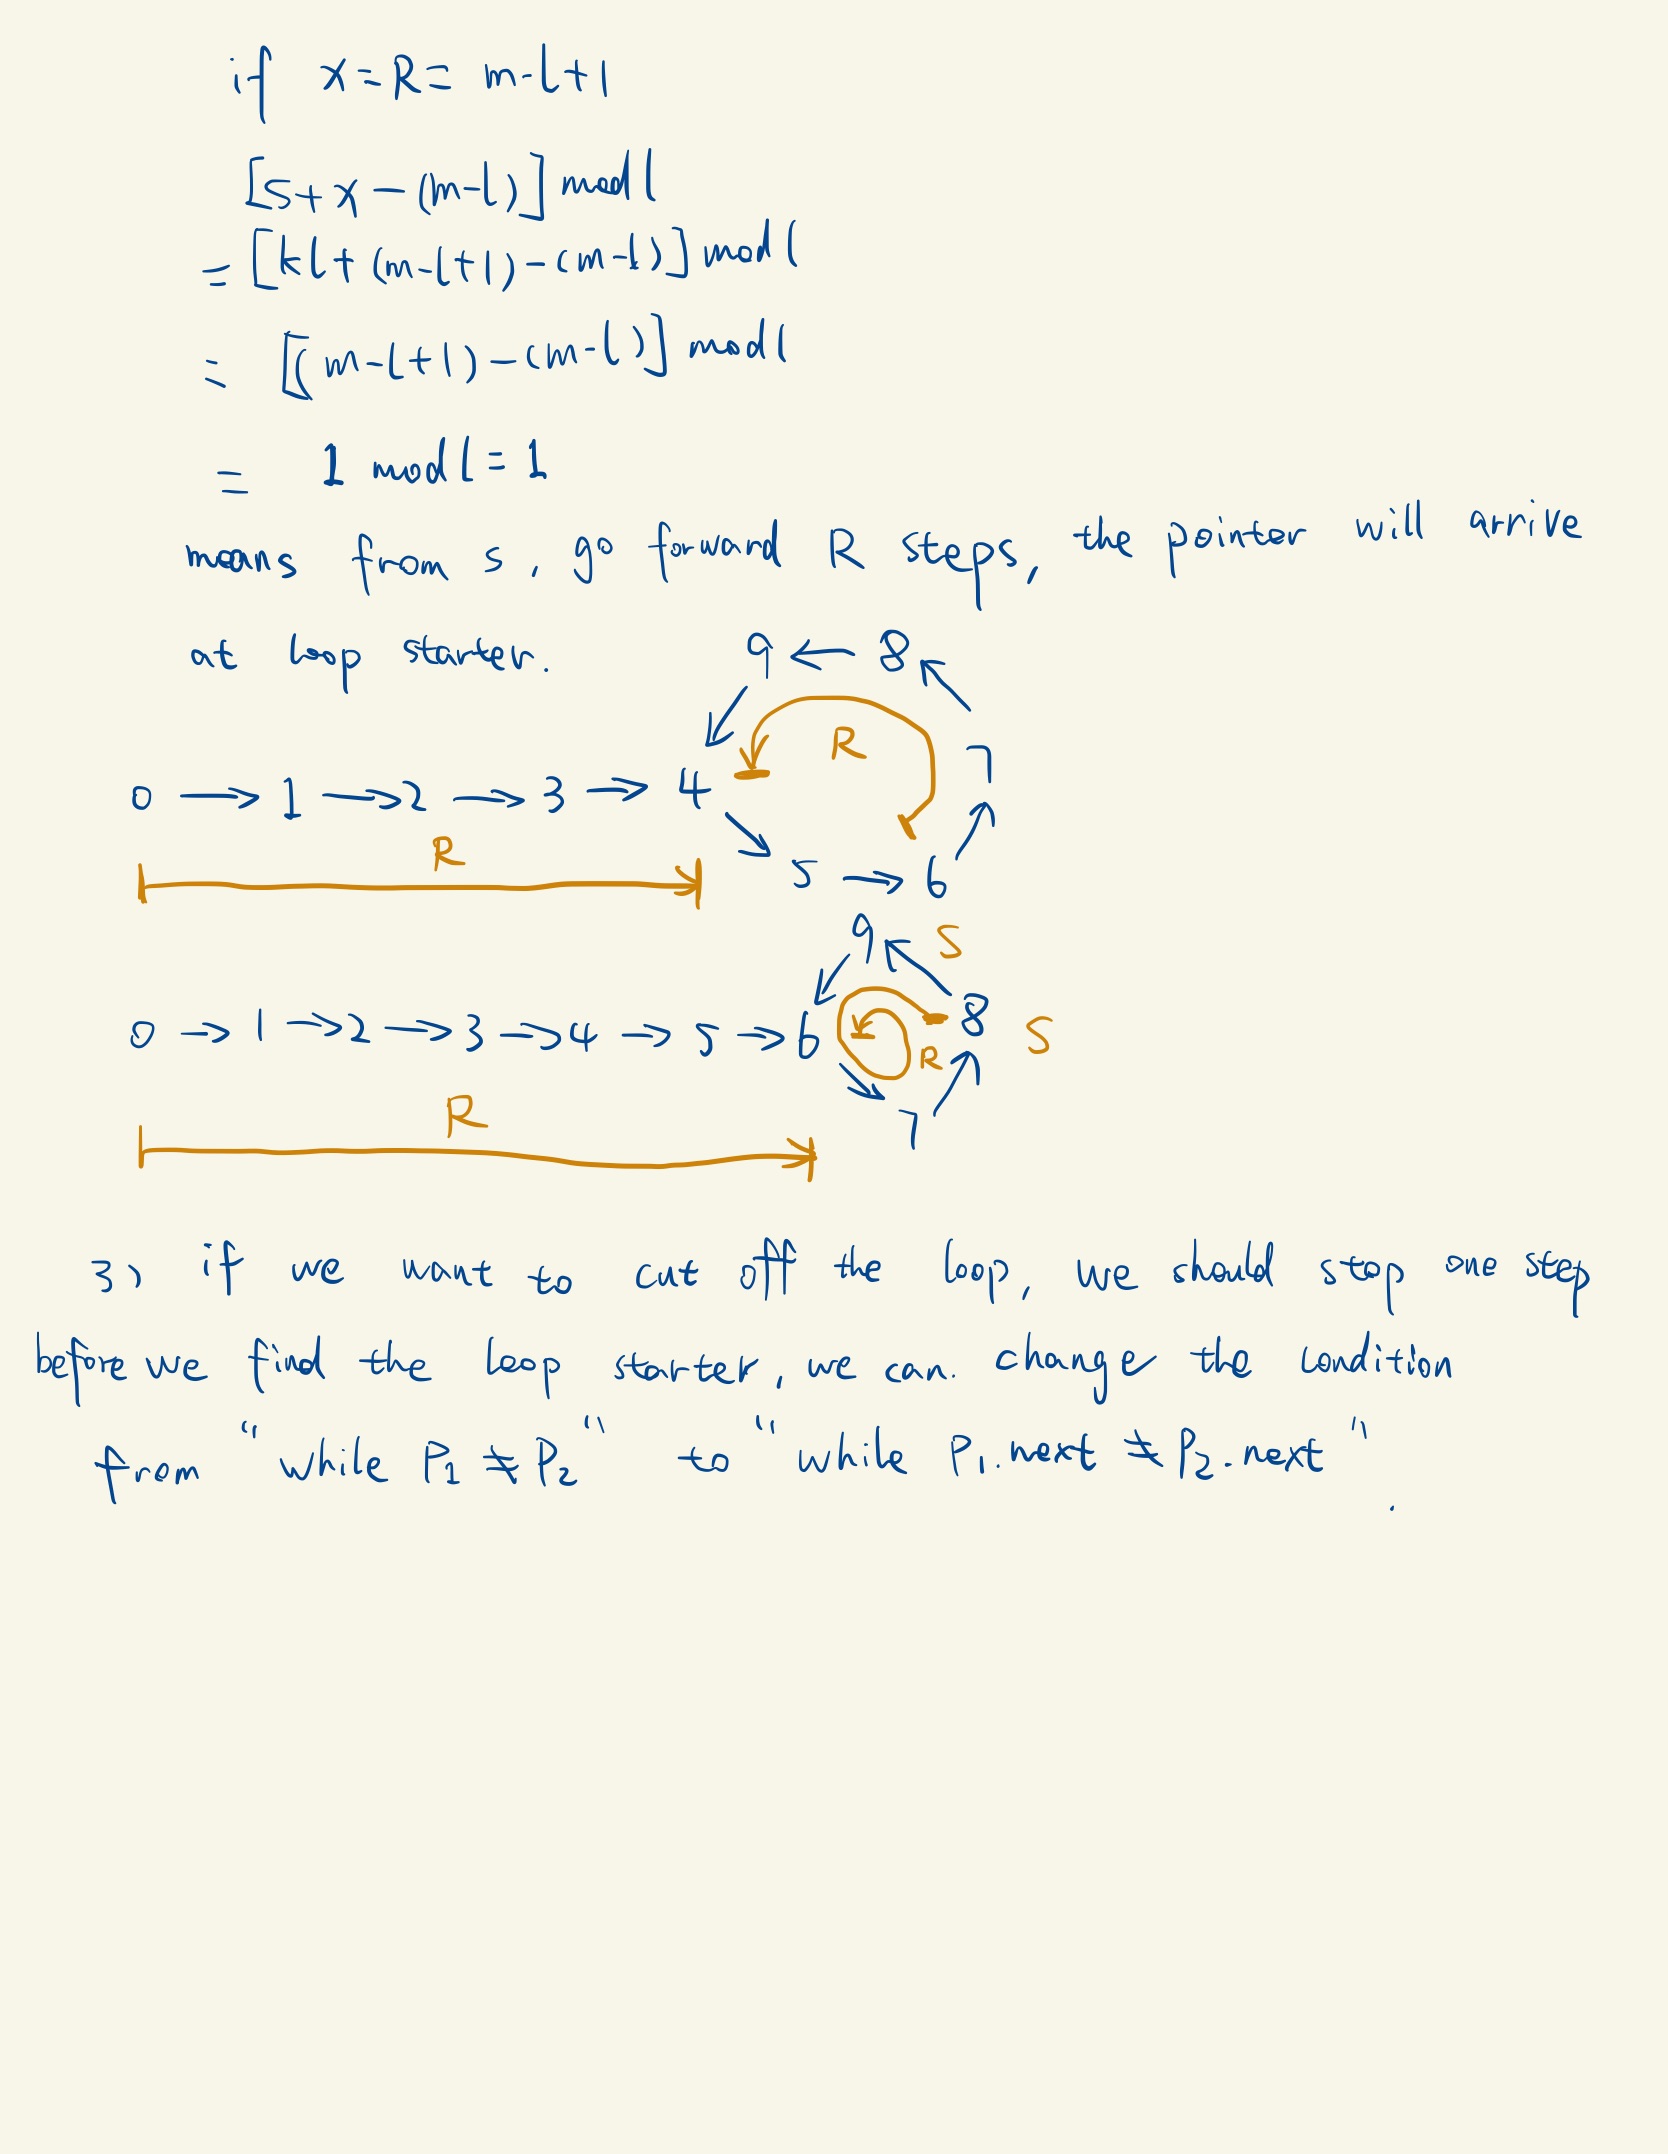 if x=R= m-l+1
[s+x-(m-l)] mod l
= [kl+(m-l+1)-(m-l)] mod l
= [(m-l+1)-(m-l)] mod l
= 1 mod l = 1
means from s, go forward R steps, the pointer will arrive
at loop starter.
9 ← 8
R
7
0 → 1 → 2 → 3 → 4
R
5 → 6
9 S
0 → 1 → 2 → 3 → 4 → 5 → 6 8 S
R
R
7
3) if we want to cut off the loop, we should stop one step
before we find the loop starter, we can. change the condition
from "while P1 ≠ P2" to "while P1.next ≠ P2.next".